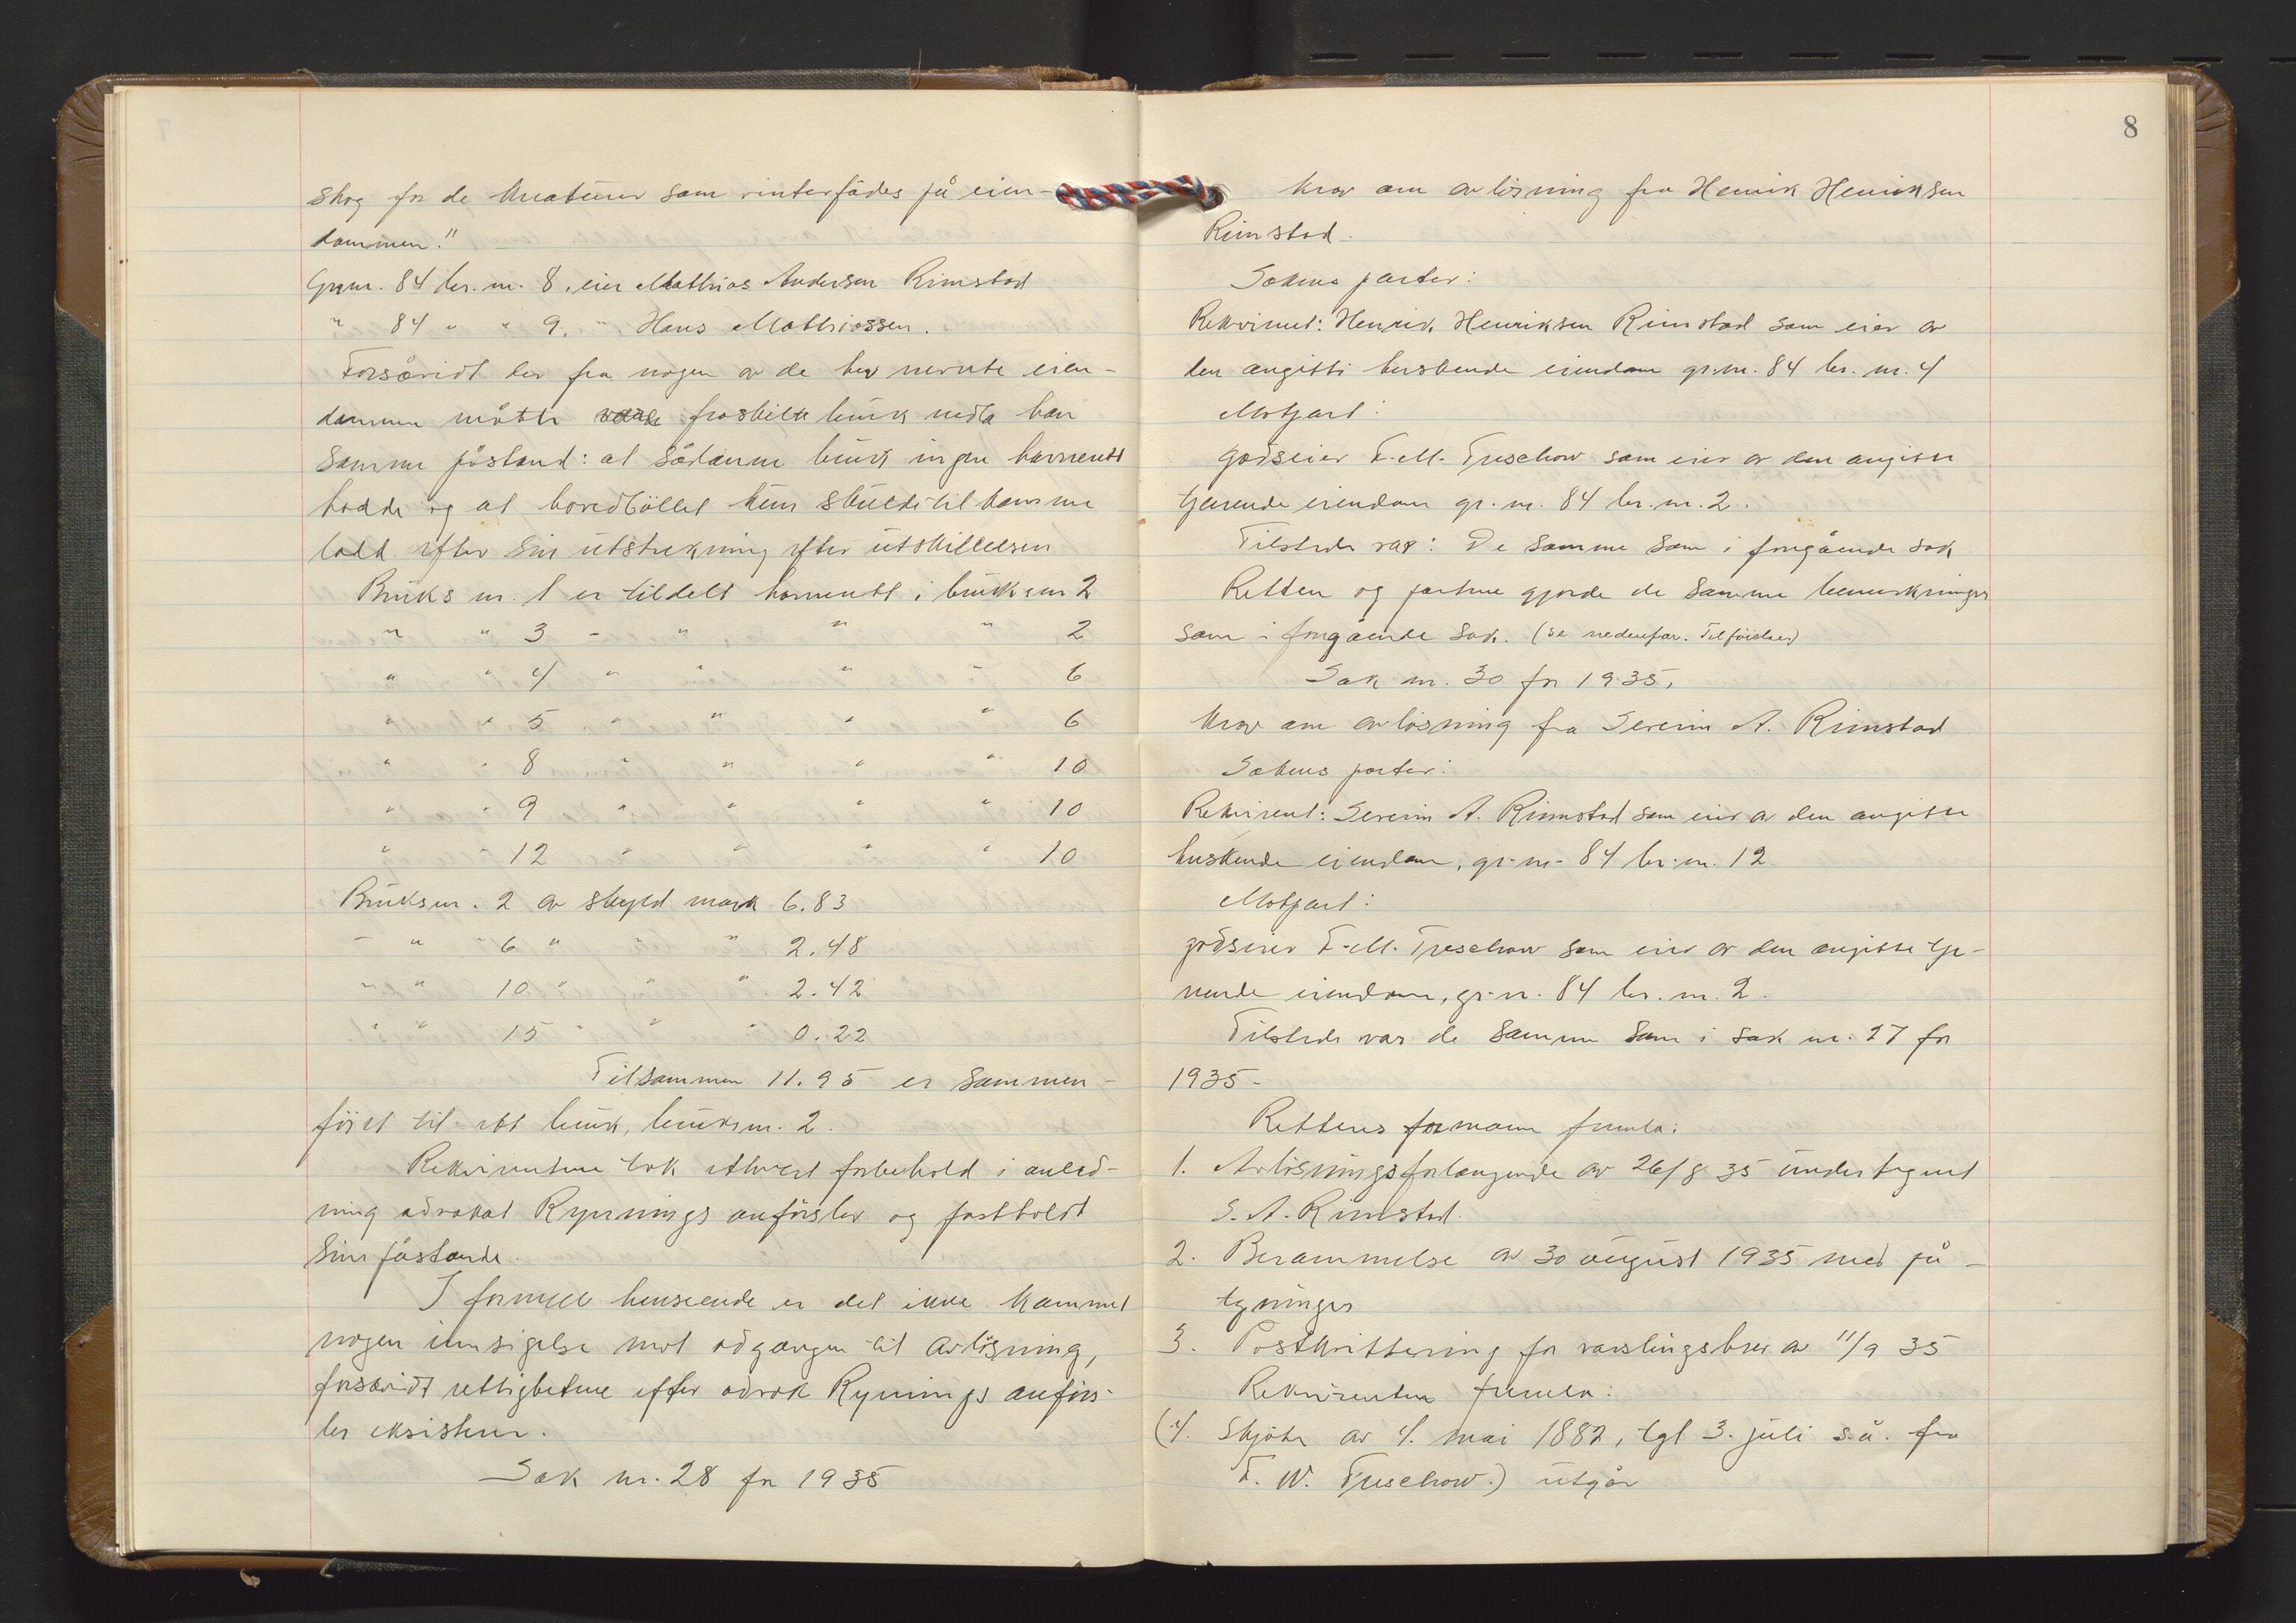 skog for de kreaturer som vinterfödes på eien-
dommen."
Grnr. 84 br. nr. 8, eier Mathias Andersen Rimstad
" 84 " " 9, " Hans Mathiassen.
Forsåvidt der fra nogen av de her nevnte eien-
dommer måtte være fraskilt bruk nedla han
samme påstand: at sådanne bruk ingen havnerett
hadde og at hovedbölet kun skulde til komme
 efter sin utstrekning efter utskillelsen
Bruks nr. 1 er tildelt havnerett i bruksnr 2
" " 3 - " " " 2
" " 4 " " " " 6
" " 5 " " " " 6
" " 8 " " " " 10
" " 9 " " " " 10
" " 12 " " " " 10
Bruksnr. 2 av skyld mark 6.83
- " " 6 " " " 2.48
" " 10 " " " 2.42
" " 15 " " " 0.22
Tilsammen 11.95 er sammen-
föiet til ett bruk, bruksnr. 2.
Rekvirentene tok ethvert forbehold i anled-
ning advokat Rynnings anförsler og fastholdt
sine påstande.
I formell henseende er det ikke kommet
nogen innsigelse mot adgangen til avlösning,
forsåvidt rettighetene efter advok Rynnings anförs-
ler eksisterer.
Sak nr. 28 for 1935
8
Krav om avlösning fra Henrik Henriksen
Rimstad.
Sakens parter:
Rekvirent: Henrik Henriksen Rimstad som eier av
den angitte herskende eiendom gr.nr. 84 br. nr. 4
Motpart:
godseier F.M. Treschow som eier av den angitte
tjenende eiendom gr. nr. 84 br. nr. 2.
Tilstede var: De samme som i foregående sak
Retten og partene gjorde de samme bemerkninger
som i foregående sak. (se nedenfor. Tilföielser)
Sak nr. 30 for 1935.
Krav om avlösning fra Severin A. Rimstad
Sakens parter:
Rekvirent: Severin A. Rimstad som eier av den angitte
herskende eiendom, gr.nr. 84 br.nr. 12
Motpart:
godseier F.M. Treschow som eier av den angitte tje-
nende eiendom, gr.nr. 84 br. nr. 2.
Tilstede var de samme som i sak nr. 27 for
1935-
Rettens formann fremla:
1. Avlösningsforlangende av 26/8 35 undertegnet
S. A. Rimstad.
2. Berammelse av 30 august 1935 med på-
tegninger
3. Postkvittering for varslingsbrev av 11/9 35
Rekvirenten fremla:
(4. Skjöte av 4. mai 1882, tgl 3. juli s.å. fra
F. W. Treschow.) utgår